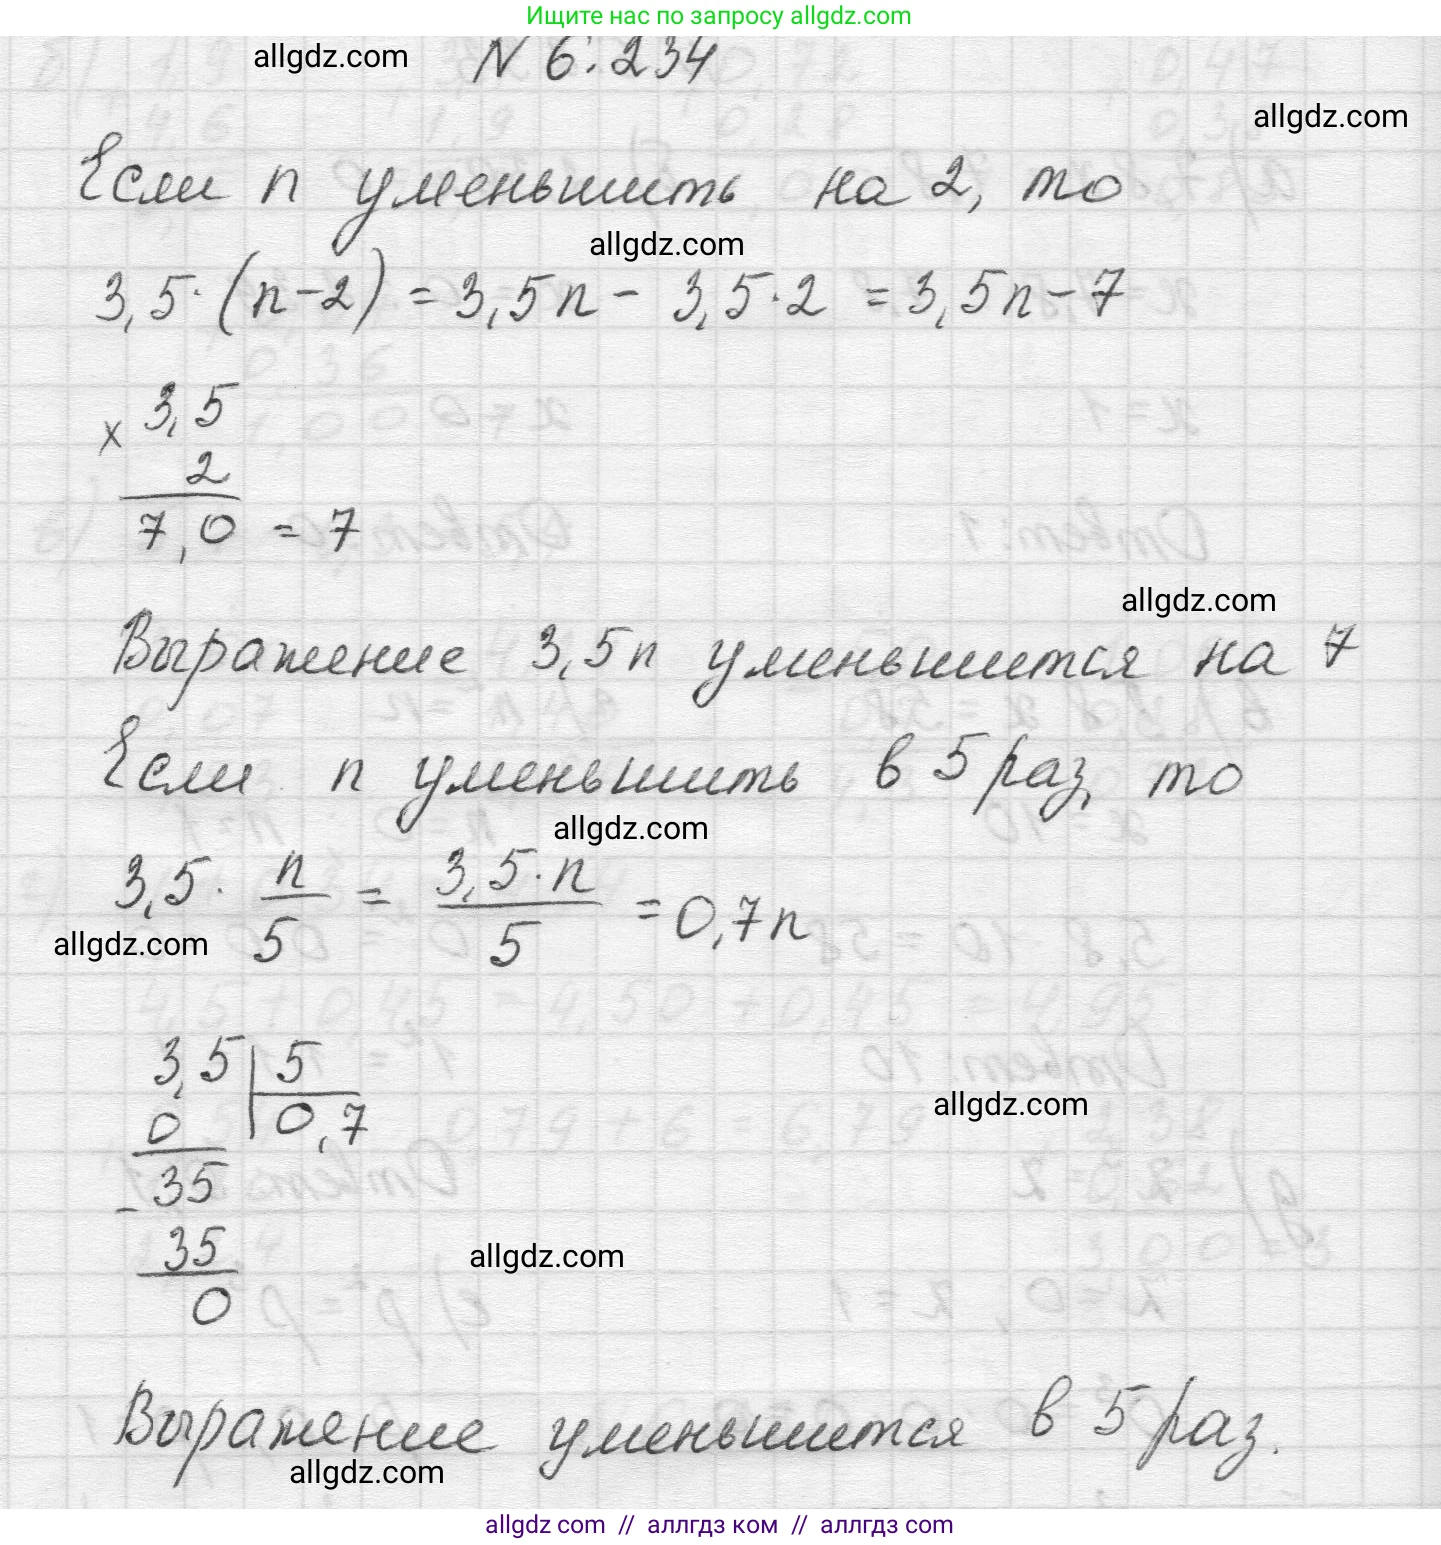 Ищите нас по запросу allgdz.com
allgdz.com
N 6.234
allgdz.com
Если n уменьшить на 2, то
allgdz.com
3,5·(n-2) = 3,5n - 3,5·2 = 3,5n - 7
× 3,5
2
7,0 = 7
allgdz.com
Выражение 3,5n уменьшится на 7
Если n уменьшить в 5 раз, то
allgdz.com
3,5 · n/5 = 3,5·n/5 = 0,7n
allgdz.com
3,5 | 5
0 0,7
allgdz.com
- 35
35
allgdz.com
0
Выражение уменьшится в 5 раз.
allgdz.com
allgdz com // аллгдз ком // аллгдз com